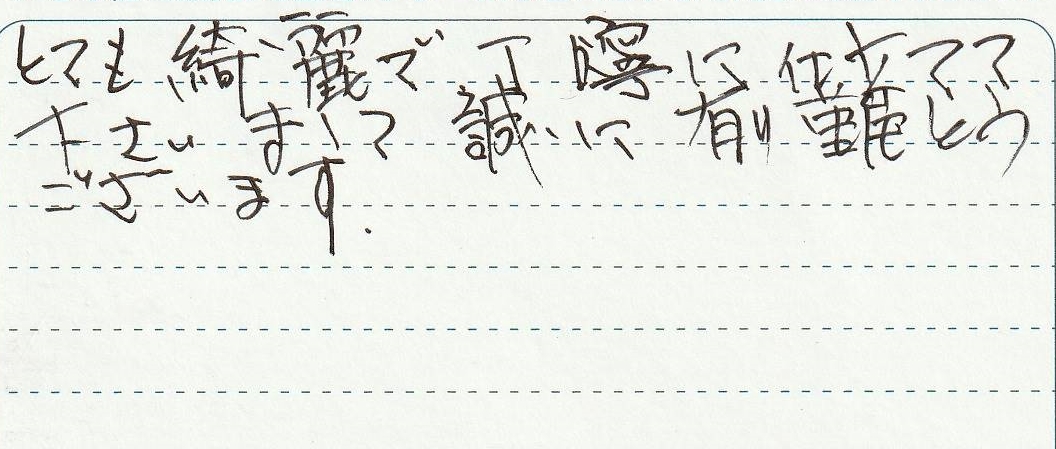 とても綺麗で丁寧に仕立てて
下さいまして誠に有り難とう
ございます.